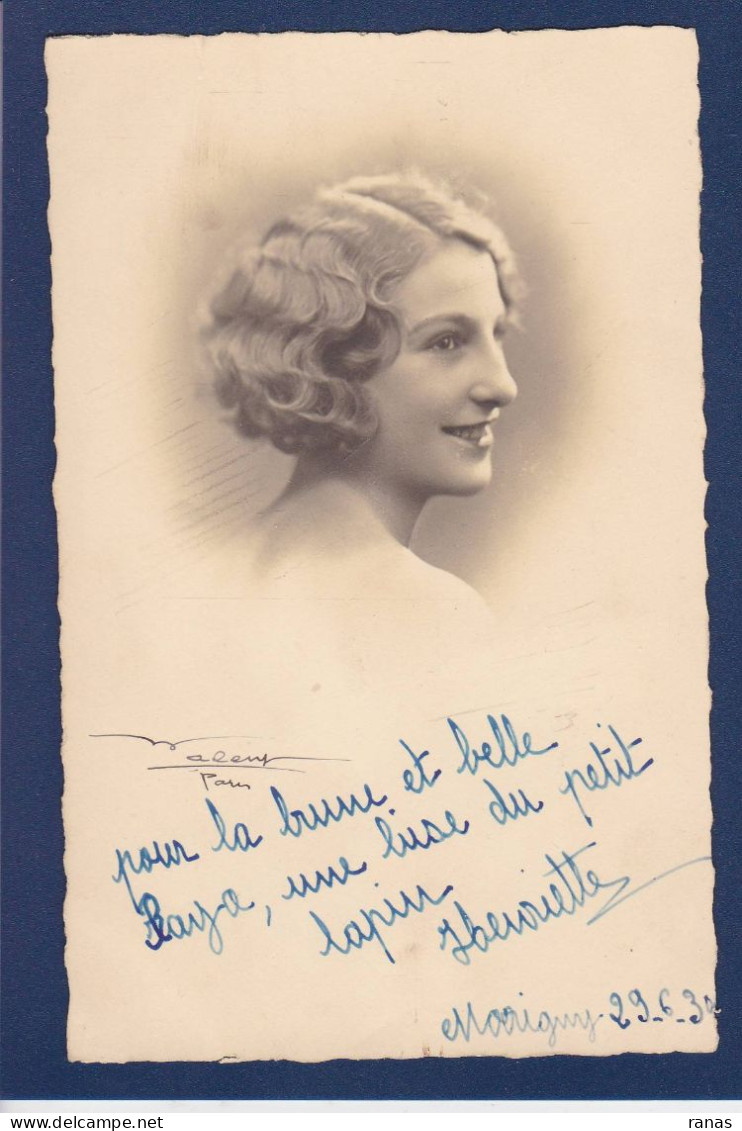 Paris
pour la brune et belle
Raya, une bise du petit
lapin Henriette
Marigny 29-6-3
ranas
DELCAMPE.NET